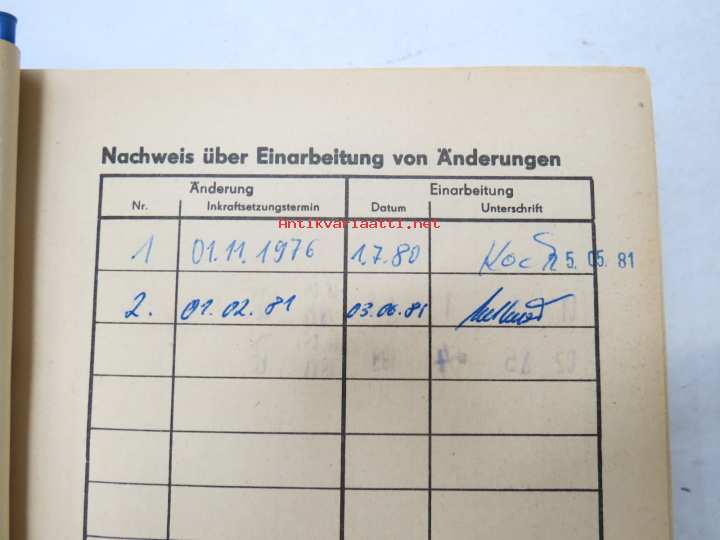 Nachweis über Einarbeitung von Änderungen
Änderung Einarbeitung
Nr. Inkraftsetzungstermin Datum Unterschrift
Antikvariaatti.net
1 01.11.1976 1.7.80 Koch 25.05.81
2. 01.02.81 03.06.81